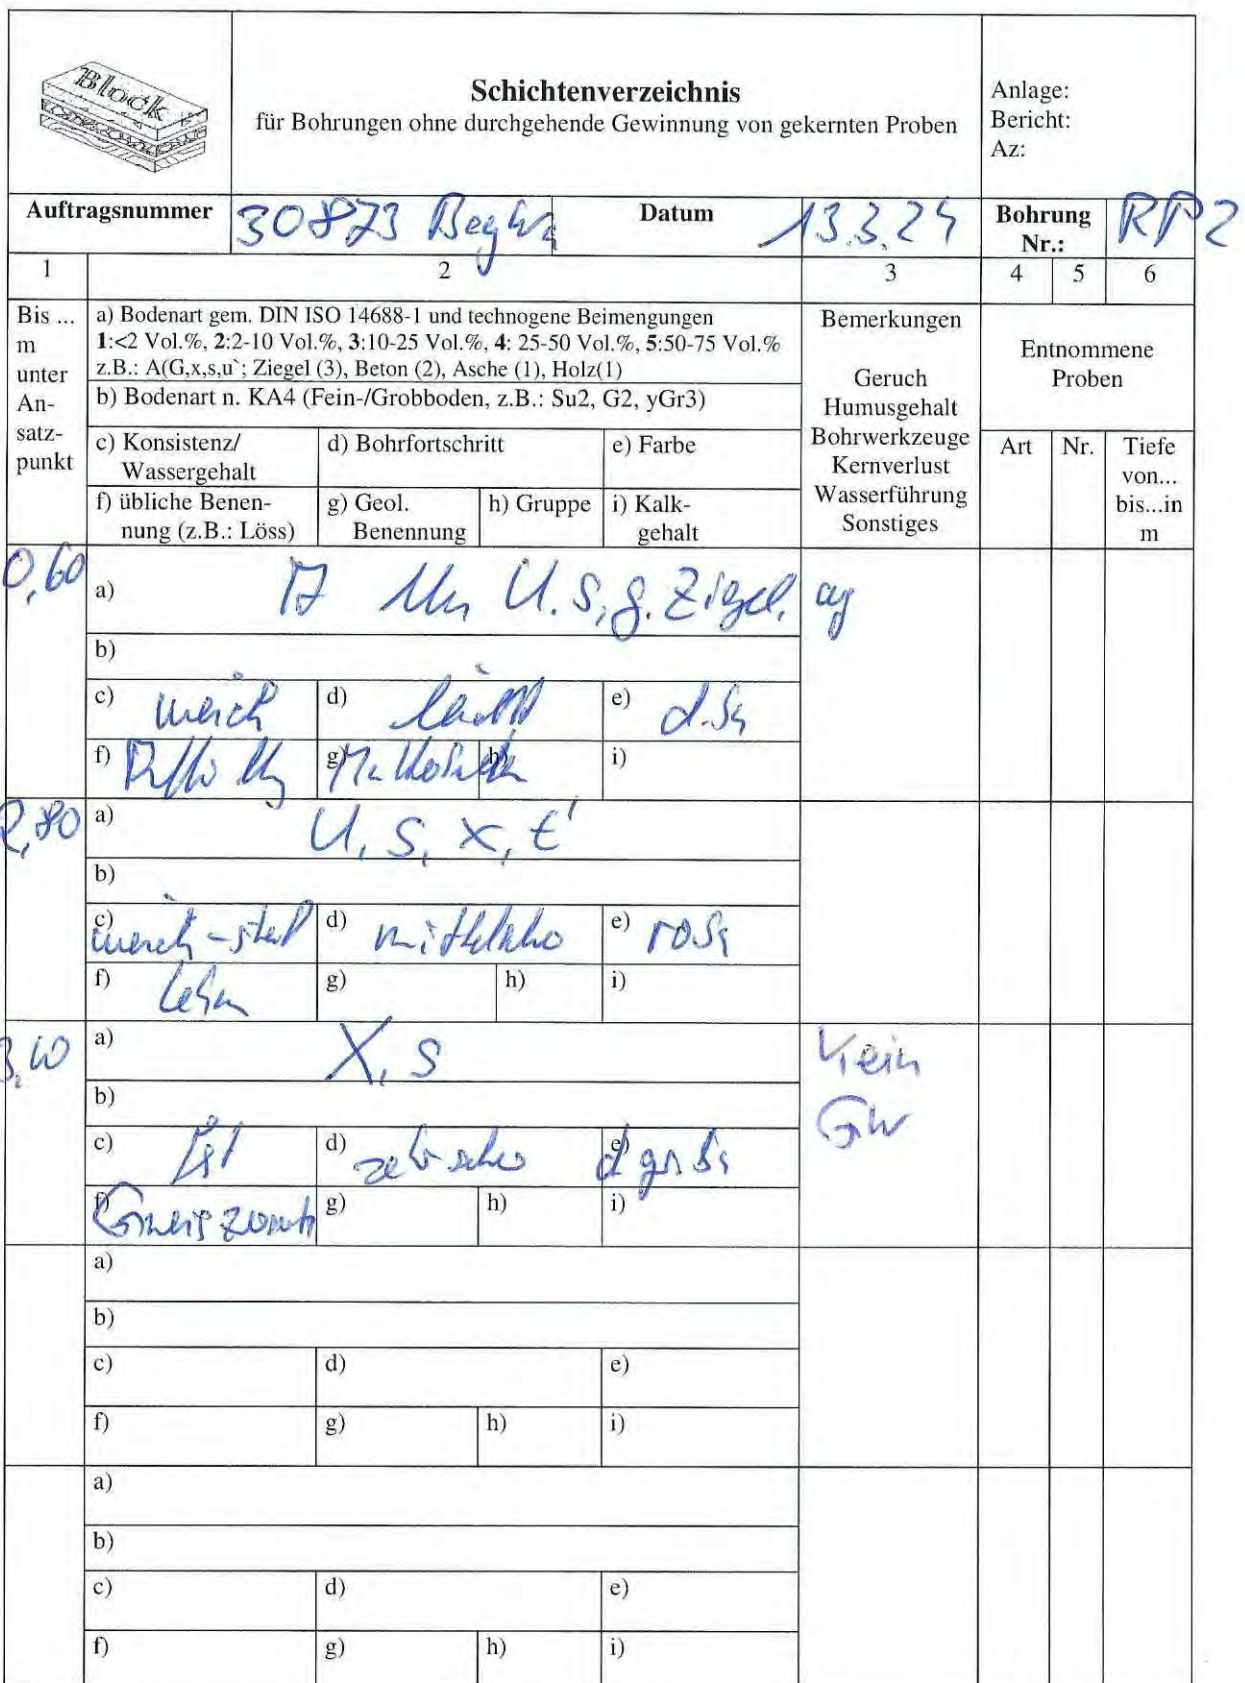 Block
Schichtenverzeichnis
für Bohrungen ohne durchgehende Gewinnung von gekernten Proben
Anlage:
Bericht:
Az:
Auftragsnummer 30873
Datum 13.3.24
Bohrung Nr.: RP2
1 2 3 4 5 6
Bis ... m unter An-satz-punkt
a) Bodenart gem. DIN ISO 14688-1 und technogene Beimengungen
1:<2 Vol.%, 2:2-10 Vol.%, 3:10-25 Vol.%, 4: 25-50 Vol.%, 5:50-75 Vol.%
z.B.: A(G,x,s,u`; Ziegel (3), Beton (2), Asche (1), Holz(1)
b) Bodenart n. KA4 (Fein-/Grobboden, z.B.: Su2, G2, yGr3)
c) Konsistenz/
Wassergehalt
d) Bohrfortschritt
e) Farbe
f) übliche Benen-
nung (z.B.: Löss)
g) Geol.
Benennung
h) Gruppe
i) Kalk-
gehalt
Bemerkungen
Geruch
Humusgehalt
Bohrwerkzeuge
Kernverlust
Wasserführung
Sonstiges
Entnommene
Proben
Art
Nr.
Tiefe
von...
bis...in
m
0,60
a) U, s, g, Ziegel,
b)
c) weich d) leicht e)
f) g) h) i)
2,80
a) U, s, x, t'
b)
c) weich - steif d) mittelschw e)
f) Lehm g) h) i)
a) X, s
b)
c) fest d) e)
f) g) h) i)
Kein
GW
a)
b)
c) d) e)
f) g) h) i)
a)
b)
c) d) e)
f) g) h) i)